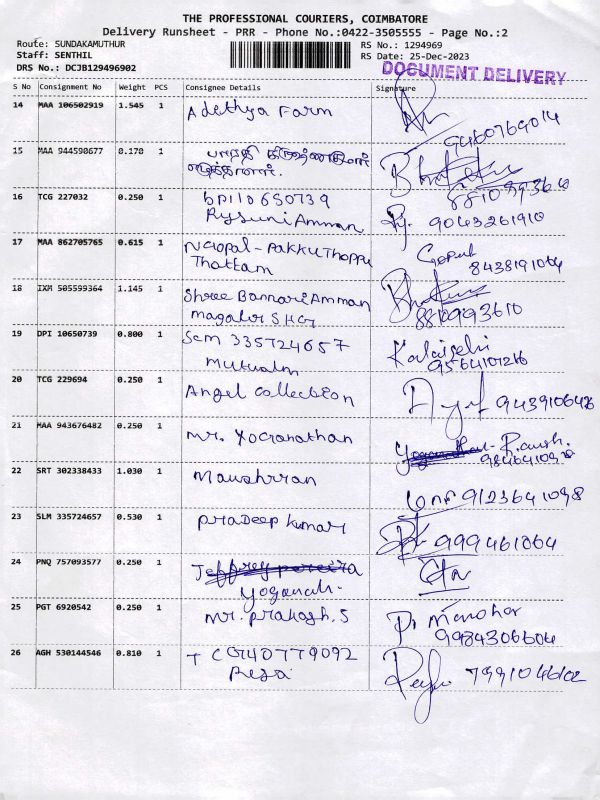 THE PROFESSIONAL COURIERS, COIMBATORE
Delivery Runsheet - PRR - Phone No.:0422-3505555 - Page No.:2
Route: SUNDAKAMUTHUR
Staff: SENTHIL
DRS No.: DCJB129496902
RS No.: 1294969
RS Date: 25-Dec-2023
DOCUMENT DELIVERY
S No Consignment No Weight PCS Consignee Details Signature
14 MAA 106502919 1.545 1 Adethya Farm
9460769014
15 MAA 944590677 0.170 1
16 TCG 227032 0.250 1 bpi10650739
Rysuni Amman 9043261910
17 MAA 862705765 0.615 1 Nagpal - Pakku Thoppu
Thottam Gopal 8438191064
18 IXM 505599364 1.145 1 Shree Bannari Amman
magalir SHG 8810993610
19 DPI 10650739 0.800 1 Scm 335724657
Mutualm Kalaiselvi
20 TCG 229694 0.250 1 Angel Collection 9439106426
21 MAA 943676482 0.250 1 mr. Yogranathan
22 SRT 302338433 1.030 1 Manshrran
9123641098
23 SLM 335724657 0.530 1 Pradeep kumar 999461064
24 PNQ 757093577 0.250 1 Jeffrey pereira
Yoganah.
25 PGT 6920542 0.250 1 mr. Prakash. S D. Manohar
9984306604
26 AGH 530144546 0.810 1 T CG40779092
Reza